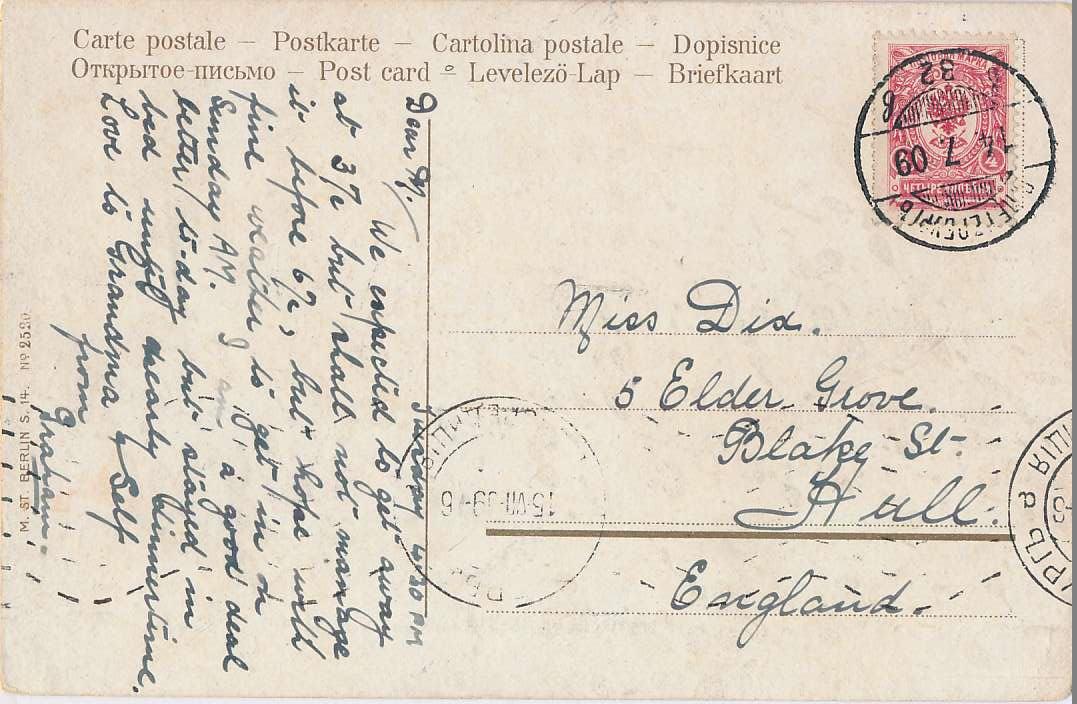 Carte postale – Postkarte – Cartolina postale – Dopisnice
Открытое-письмо – Post card – Levelezö-Lap – Briefkaart
Dear
Sunday 4.30 AM
We expected to get away
at 3 but shall not manage
it before 6, but hope with
fine weather to get in on
Sunday AM. I am a good deal
better to-day but stayed in
bed until nearly dinnertime.
Love to Grandma & Self
from
Graham.
Miss Dix.
5 Elder Grove.
Blake St.
Hull.
England.
14 7 09
15-VII-09
M. ST. BERLIN S. 14. No 2520.